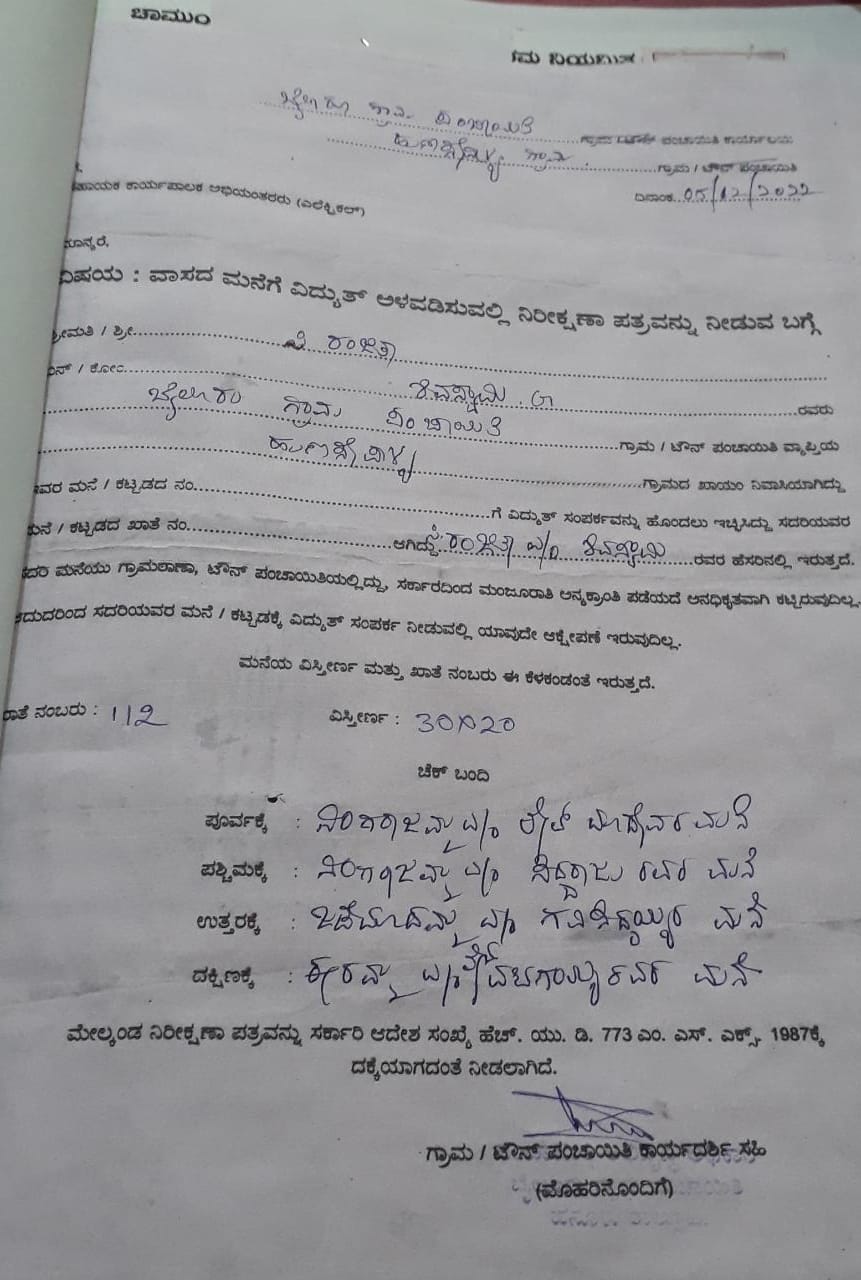 ಚಾಮುಂ
ನಿಯಮಿತ
ಬೈಲೂರು ಗ್ರಾಮ ಪಂಚಾಯಿತಿ ಗ್ರಾಮ ಪಂಚಾಯಿತಿ ಕಾರ್ಯಾಲಯ
ಗ್ರಾಮ ಗ್ರಾಮ / ಟೌನ್ ಪಂಚಾಯಿತಿ
ದಿನಾಂಕ 05/12/2022
ಕಾರ್ಯಪಾಲಕ ಅಭಿಯಂತರರು (ಎಲೆಕ್ಟ್ರಿಕಲ್)
ಮಾನ್ಯರೆ,
ವಿಷಯ : ವಾಸದ ಮನೆಗೆ ವಿದ್ಯುತ್ ಅಳವಡಿಸುವಲ್ಲಿ ನಿರೀಕ್ಷಣಾ ಪತ್ರವನ್ನು ನೀಡುವ ಬಗ್ಗೆ
ಶ್ರೀಮತಿ / ಶ್ರೀ ರಂಜಿತಾ
ಬಿನ್ / ಕೋಂ ಶಿವಸ್ವಾಮಿ .G ರವರು
ಬೈಲೂರು ಗ್ರಾಮ ಪಂಚಾಯಿತಿ ಗ್ರಾಮ / ಟೌನ್ ಪಂಚಾಯಿತಿ ವ್ಯಾಪ್ತಿಯ
ಗ್ರಾಮದ ಖಾಯಂ ನಿವಾಸಿಯಾಗಿದ್ದು
ಇವರ ಮನೆ / ಕಟ್ಟಡದ ನಂ. ಗೆ ವಿದ್ಯುತ್ ಸಂಪರ್ಕವನ್ನು ಹೊಂದಲು ಇಚ್ಛಿಸಿದ್ದು ಸದರಿಯವರ
ಮನೆ / ಕಟ್ಟಡದ ಖಾತೆ ನಂ. ಆಗಿದ್ದು ರಂಜಿತಾ w/o ಶಿವಸ್ವಾಮಿ ರವರ ಹೆಸರಿನಲ್ಲಿ ಇರುತ್ತದೆ.
ಸದರಿ ಮನೆಯು ಗ್ರಾಮಠಾಣಾ, ಟೌನ್ ಪಂಚಾಯಿತಿಯಲ್ಲಿದ್ದು, ಸರ್ಕಾರದಿಂದ ಮಂಜೂರಾತಿ ಅನ್ಯಕ್ರಾಂತಿ ಪಡೆಯದೆ ಅನಧಿಕೃತವಾಗಿ ಕಟ್ಟಿರುವುದಿಲ್ಲ.
ಆದುದರಿಂದ ಸದರಿಯವರ ಮನೆ / ಕಟ್ಟಡಕ್ಕೆ ವಿದ್ಯುತ್ ಸಂಪರ್ಕ ನೀಡುವಲ್ಲಿ ಯಾವುದೇ ಆಕ್ಷೇಪಣೆ ಇರುವುದಿಲ್ಲ.
ಮನೆಯ ವಿಸ್ತೀರ್ಣ ಮತ್ತು ಖಾತೆ ನಂಬರು ಈ ಕೆಳಕಂಡಂತೆ ಇರುತ್ತದೆ.
ಖಾತೆ ನಂಬರು : 112 ವಿಸ್ತೀರ್ಣ : 30X20
ಚೆಕ್ ಬಂದಿ
ಪೂರ್ವಕ್ಕೆ : ನಿಂಗರಾಜಮ್ಮ w/o ಲೇಟ್ ಮಾದೇವರ ಮನೆ
ಪಶ್ಚಿಮಕ್ಕೆ : w/o ಸಿದ್ದರಾಜು ರವರ ಮನೆ
ಉತ್ತರಕ್ಕೆ : ಜಡೆಮಾದಮ್ಮ w/o ಮನೆ
ದಕ್ಷಿಣಕ್ಕೆ : ಈರಮ್ಮ w/o ರವರ ಮನೆ
ಮೇಲ್ಕಂಡ ನಿರೀಕ್ಷಣಾ ಪತ್ರವನ್ನು ಸರ್ಕಾರಿ ಆದೇಶ ಸಂಖ್ಯೆ ಹೆಚ್. ಯು. ಡಿ. 773 ಎಂ. ಎಸ್. ಎಕ್ಸ್. 1987ಕ್ಕೆ
ದಕ್ಕೆಯಾಗದಂತೆ ನೀಡಲಾಗಿದೆ.
ಗ್ರಾಮ / ಟೌನ್ ಪಂಚಾಯಿತಿ ಕಾರ್ಯದರ್ಶಿ ಸಹಿ
(ಮೊಹರಿನೊಂದಿಗೆ)